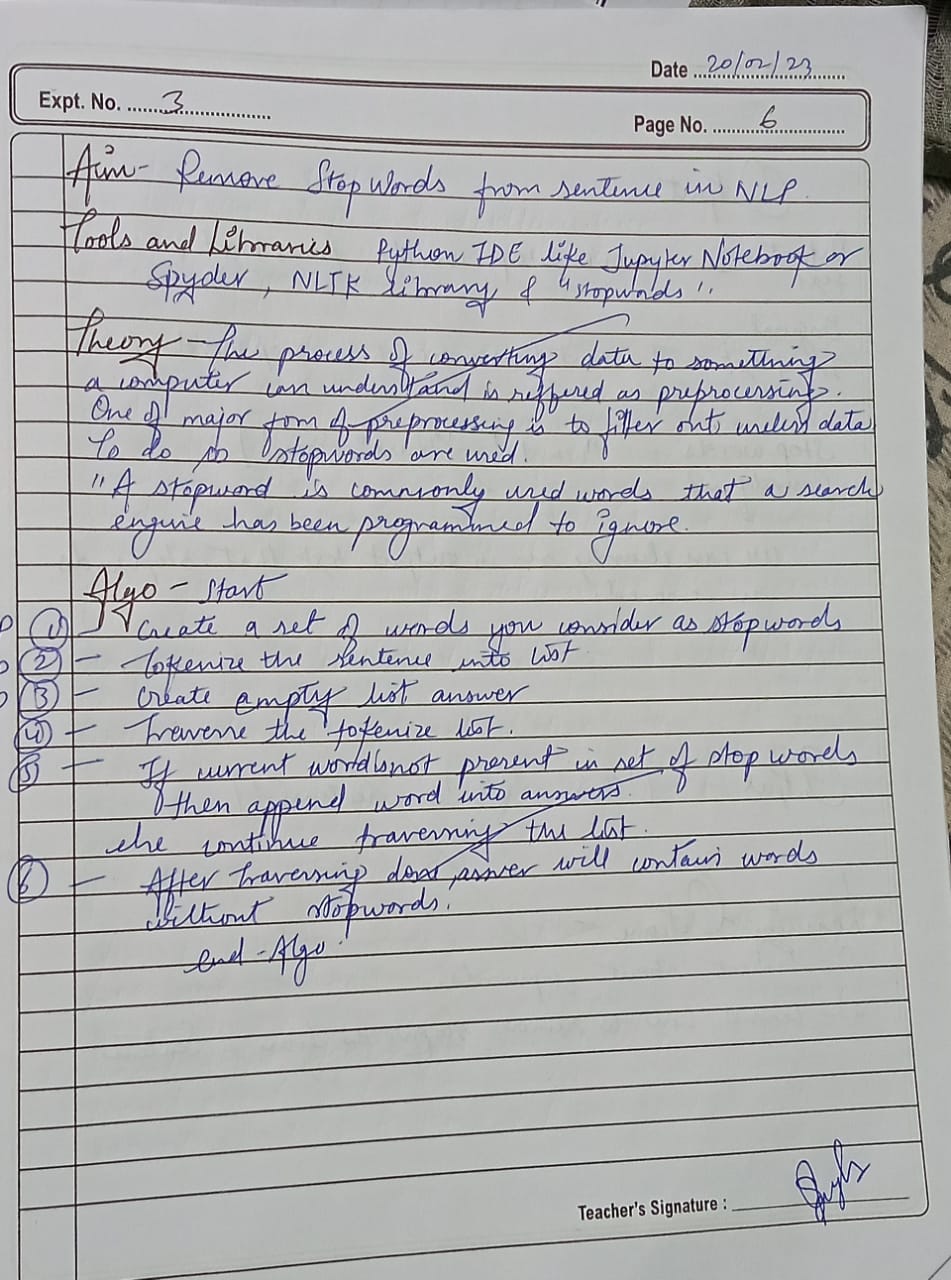 Date 20/02/23
Expt. No. 3
Page No. 6
Aim- Remove Stop Words from sentence in NLP.
Tools and Libraries Python IDE like Jupyter Notebook or
Spyder, NLTK Library & "stopwords".
Theory - The process of converting data to something
a computer can understand is reffered as preprocessing.
One of major form of preprocessing is to filter out useless data
To do so stopwords are used.
"A stopword is commonly used words that a search
engine has been programmed to ignore.
Algo - Start
1 Create a set of words you consider as stop words
2 - Tokenize the sentence into list
3 - Create empty list answer
4 - Traverse the tokenize list.
5 - If current word is not present in set of stop words
then append word into answers.
else continue traversing the list.
6 - After traversing done answer will contain words
without stopwords.
end-Algo.
Teacher's Signature :